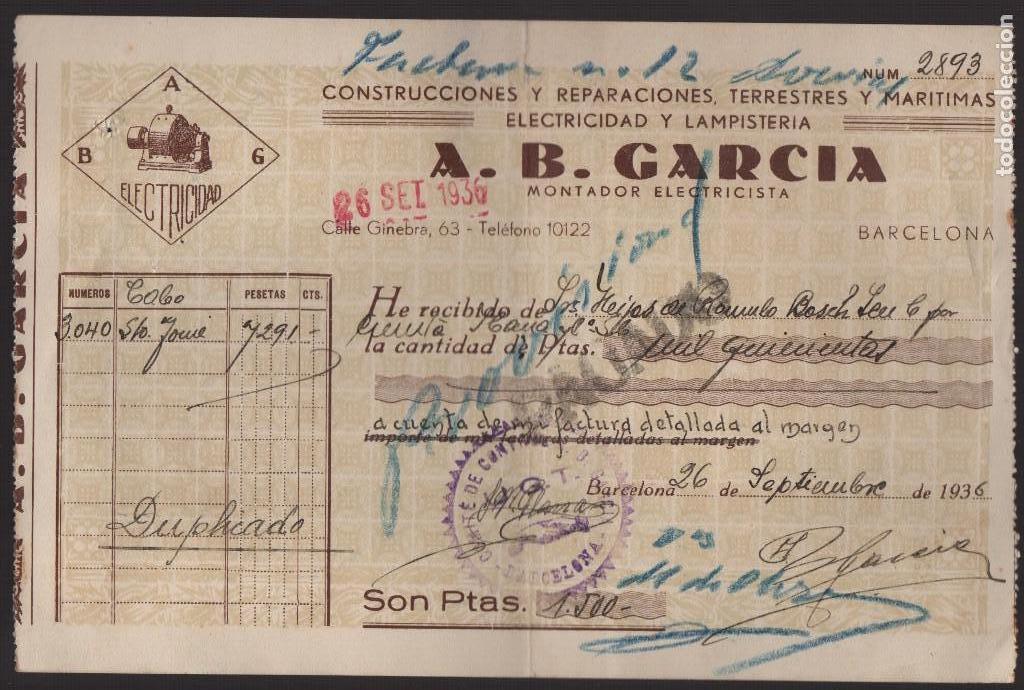 NUM. 2893
CONSTRUCCIONES Y REPARACIONES, TERRESTRES Y MARITIMAS
ELECTRICIDAD Y LAMPISTERIA
A. B. GARCIA
MONTADOR ELECTRICISTA
A
B G
ELECTRICIDAD
26 SET 1936
Calle Ginebra, 63 - Teléfono 10122
BARCELONA
A. B. GARCIA
NUMEROS Cabo PESETAS CTS.
3.040 Sto. 7291 -
Duplicado
He recibido de Sres. Hijos de Romulo Bosch S en C por
cuenta
la cantidad de Ptas. mil quinientas
a cuenta de mi factura detallada al margen
importe de mis facturas detalladas al margen
COMITÉ DE CONTROL
A. B. G.
BARCELONA
Barcelona 26 de Septiembre de 1936
Garcia
Son Ptas. 1.500-
todocoleccion